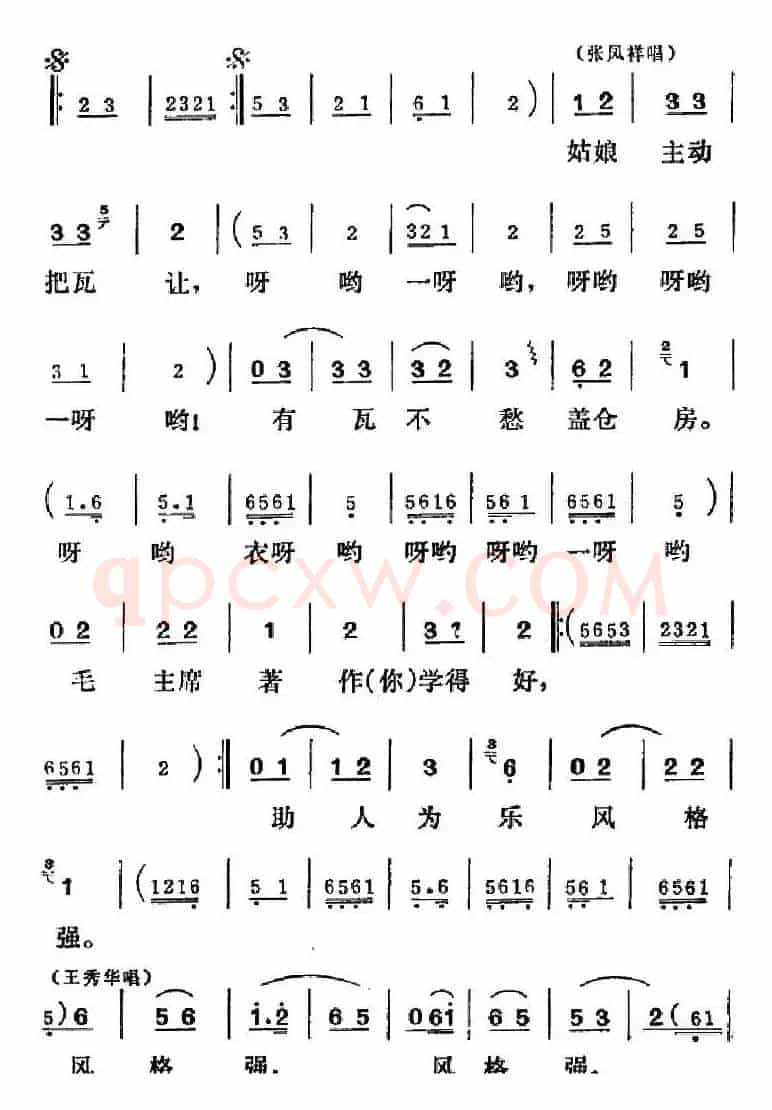 2 3 | 2321 :‖ 5 3 | 2 1 | 6 1 | 2 ) | 1 2 | 3 3 |
(张凤祥唱)
姑娘 主动
3 3 | 2 | ( 5 3 | 2 | 321 | 2 | 2 5 | 2 5 |
把瓦 让, 呀 哟 一呀 哟, 呀哟 呀哟
3 1 | 2 ) | 0 3 | 3 3 | 3 2 | 3 | 6 2 | 1 |
一呀 哟! 有 瓦 不 愁 盖仓 房。
( 1.6 | 5.1 | 6561 | 5 | 5616 | 56 1 | 6561 | 5 ) |
呀 哟 衣呀 哟 呀哟 呀哟 一呀 哟
qpcxw.COM
0 2 | 2 2 | 1 | 2 | 3 | 2 ‖: ( 5653 | 2321 |
毛 主席 著 作(你)学得 好,
6561 | 2 ) :‖ 0 1 | 1 2 | 3 | 6 | 0 2 | 2 2 |
助 人 为 乐 风 格
1 | ( 1216 | 5 1 | 6561 | 5.6 | 5616 | 56 1 | 6561 |
强。
(王秀华唱)
5 ) 6 | 5 6 | 1.2 | 6 5 | 0 61 | 6 5 | 5 3 | 2 ( 61 |
风 格 强, 风格 强,